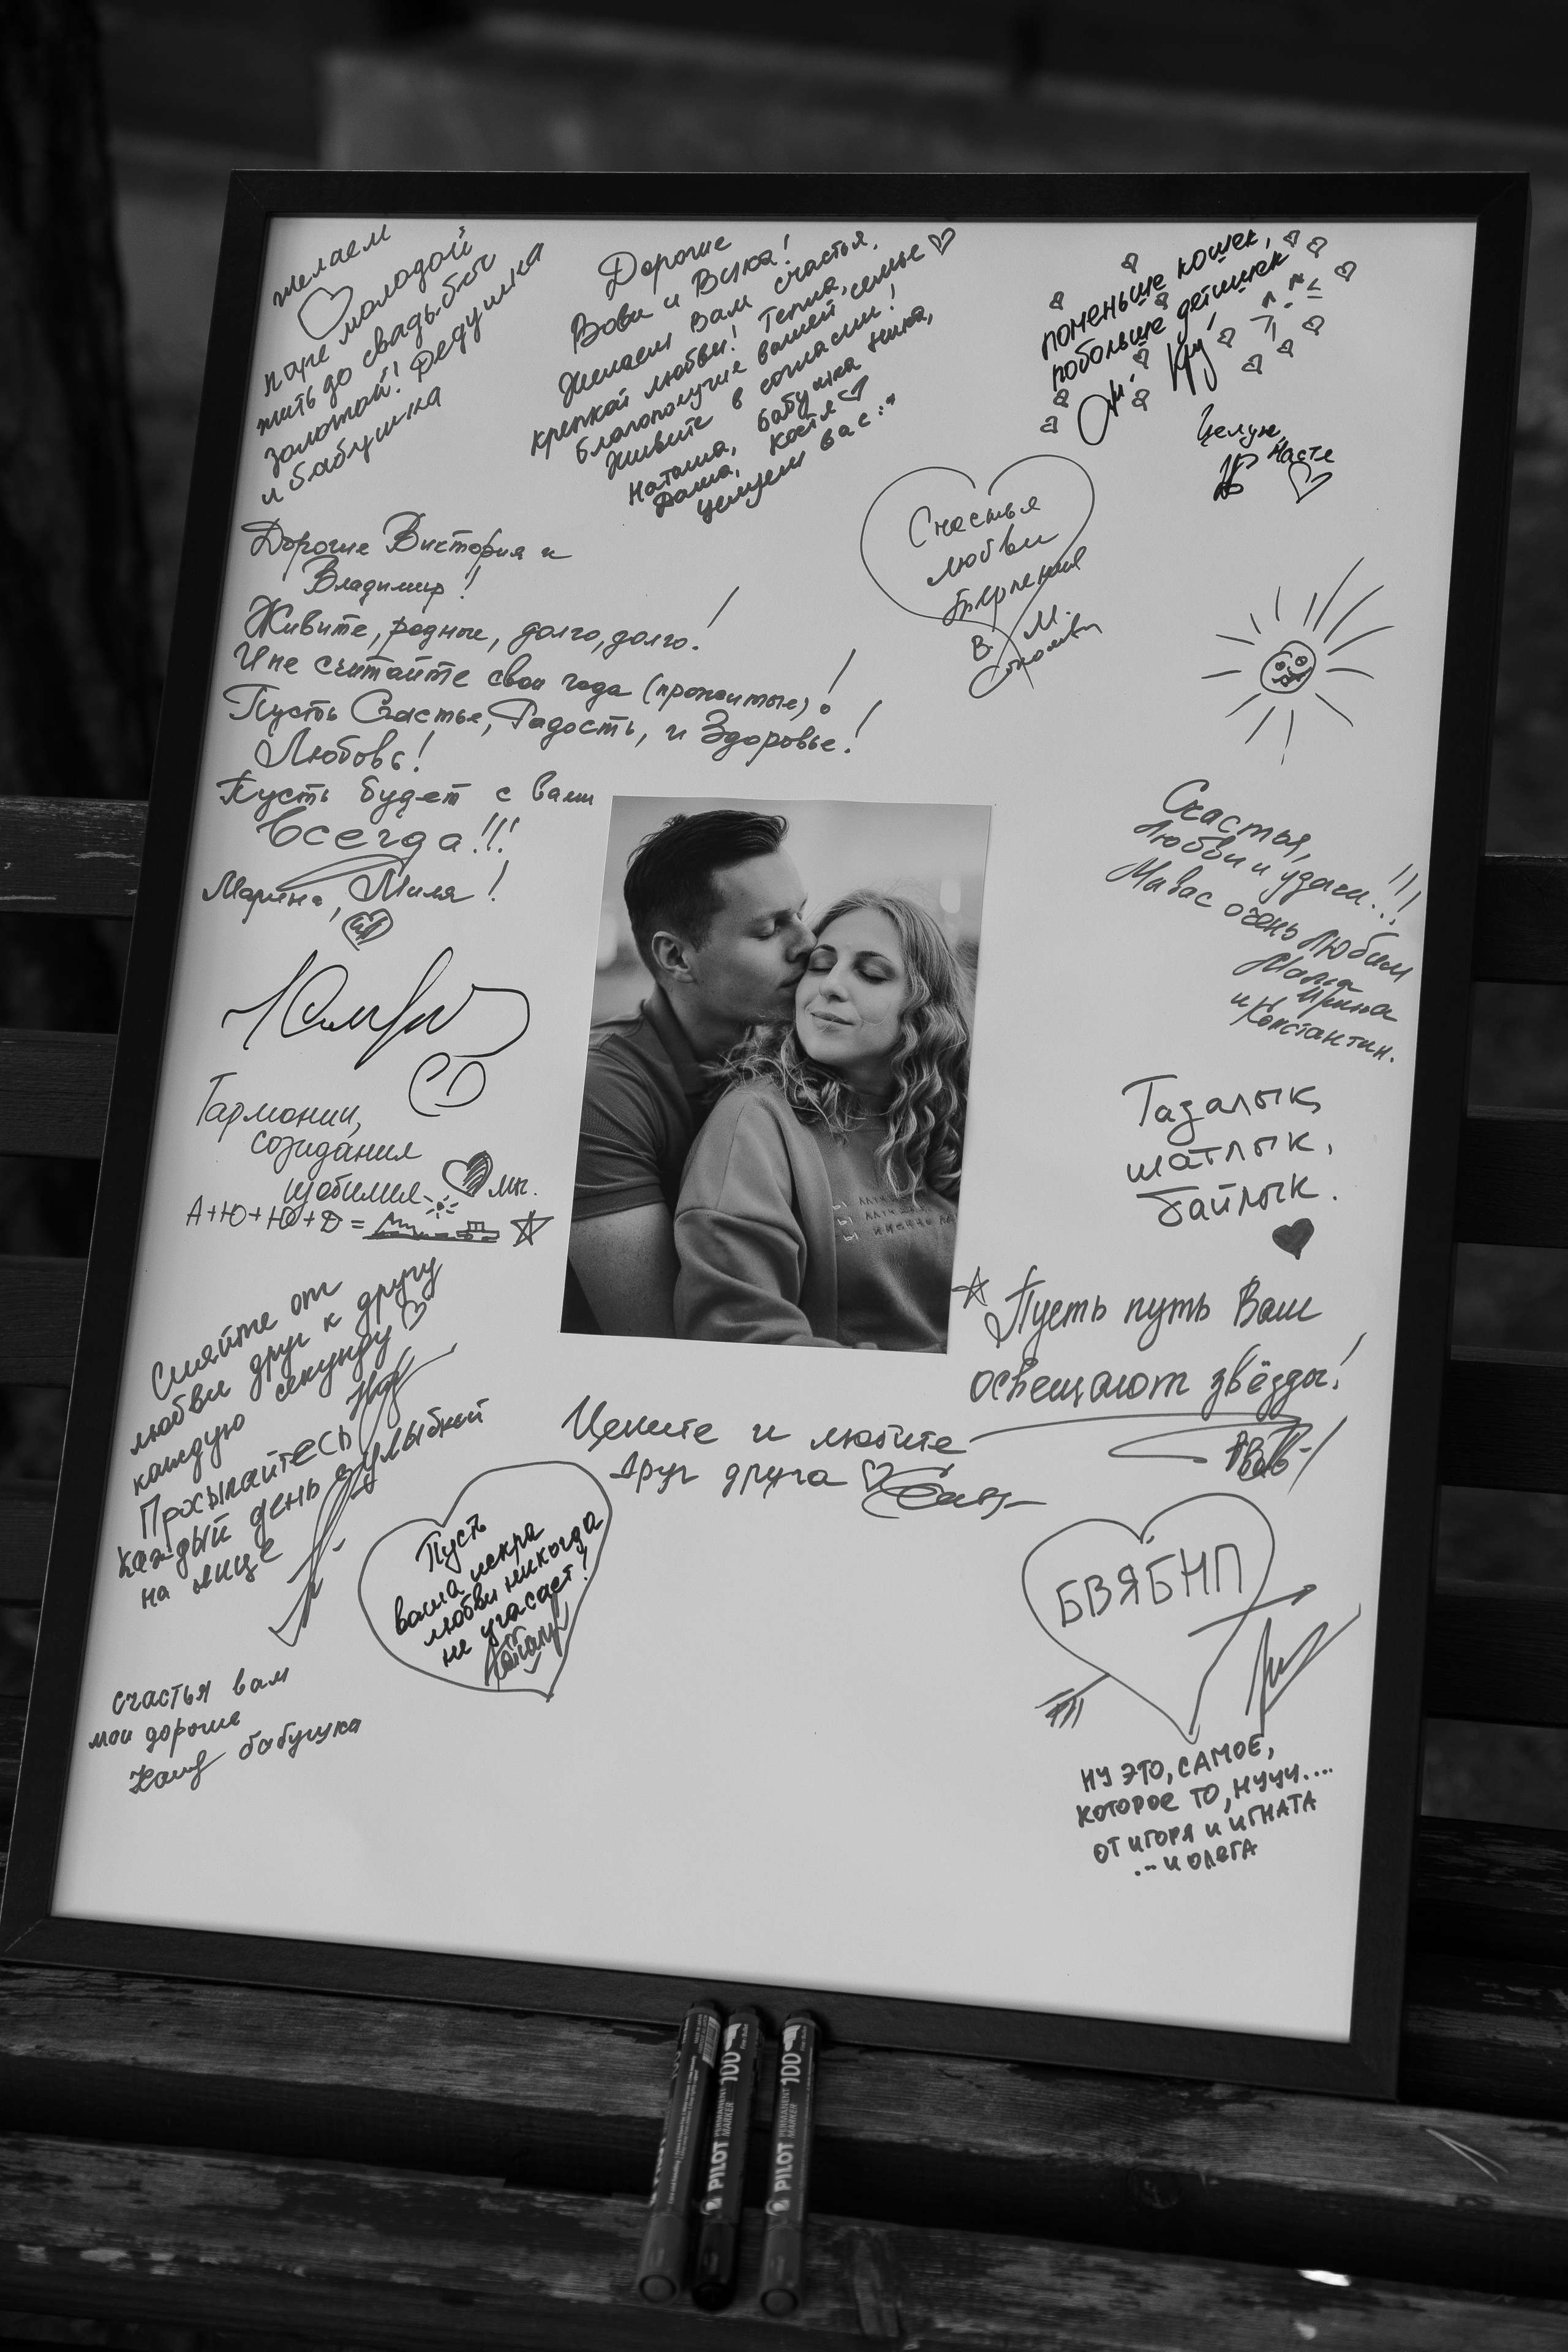 желаем
паре молодой
жить до свадьбы
золотой! Дедушка
и бабушка
Дорогие
Вова и Вика!
Желаем вам счастья,
крепкой любви! Тепла,
благополучия вашей семье
Живите в согласии!
Наташа, бабушка Ника,
Даша, Костя
целуем вас :*
поменьше кошек,
побольше детишек
Целую,
Настя
Счастья
любви
терпения
В. М.
Дорогие Виктория и
Владимир!
Живите, родные, долго, долго!
И не считайте свои года (прожитые)!
Пусть Счастье, Радость, и Здоровье!
Любовь!
Пусть будет с вами
Всегда!!!
Марина, Миля!
Счастья,
Любви и удачи..!!!
Мы вас очень любим
Мама Ирина
и Константин.
Гармонии,
созидания
изобилия
А+Ю+Ю+Д=
Тазалык,
шатлык,
байлык.
Пусть путь Ваш
освещают звёзды!
Сияйте от
любви друг к другу
каждую секунду
Просыпайтесь
каждый день с улыбкой
на лице
Цените и любите
друг друга
Пусть
ваша искра
любви никогда
не угасает!
БВЯБНП
счастья вам
мои дорогие
бабушка
НУ ЭТО, САМОЕ,
КОТОРОЕ ТО, НУУУ....
ОТ ИГОРЯ И ИГНАТА
... И ОЛЕГА
PILOT PERMANENT MARKER 100
PILOT PERMANENT MARKER 100